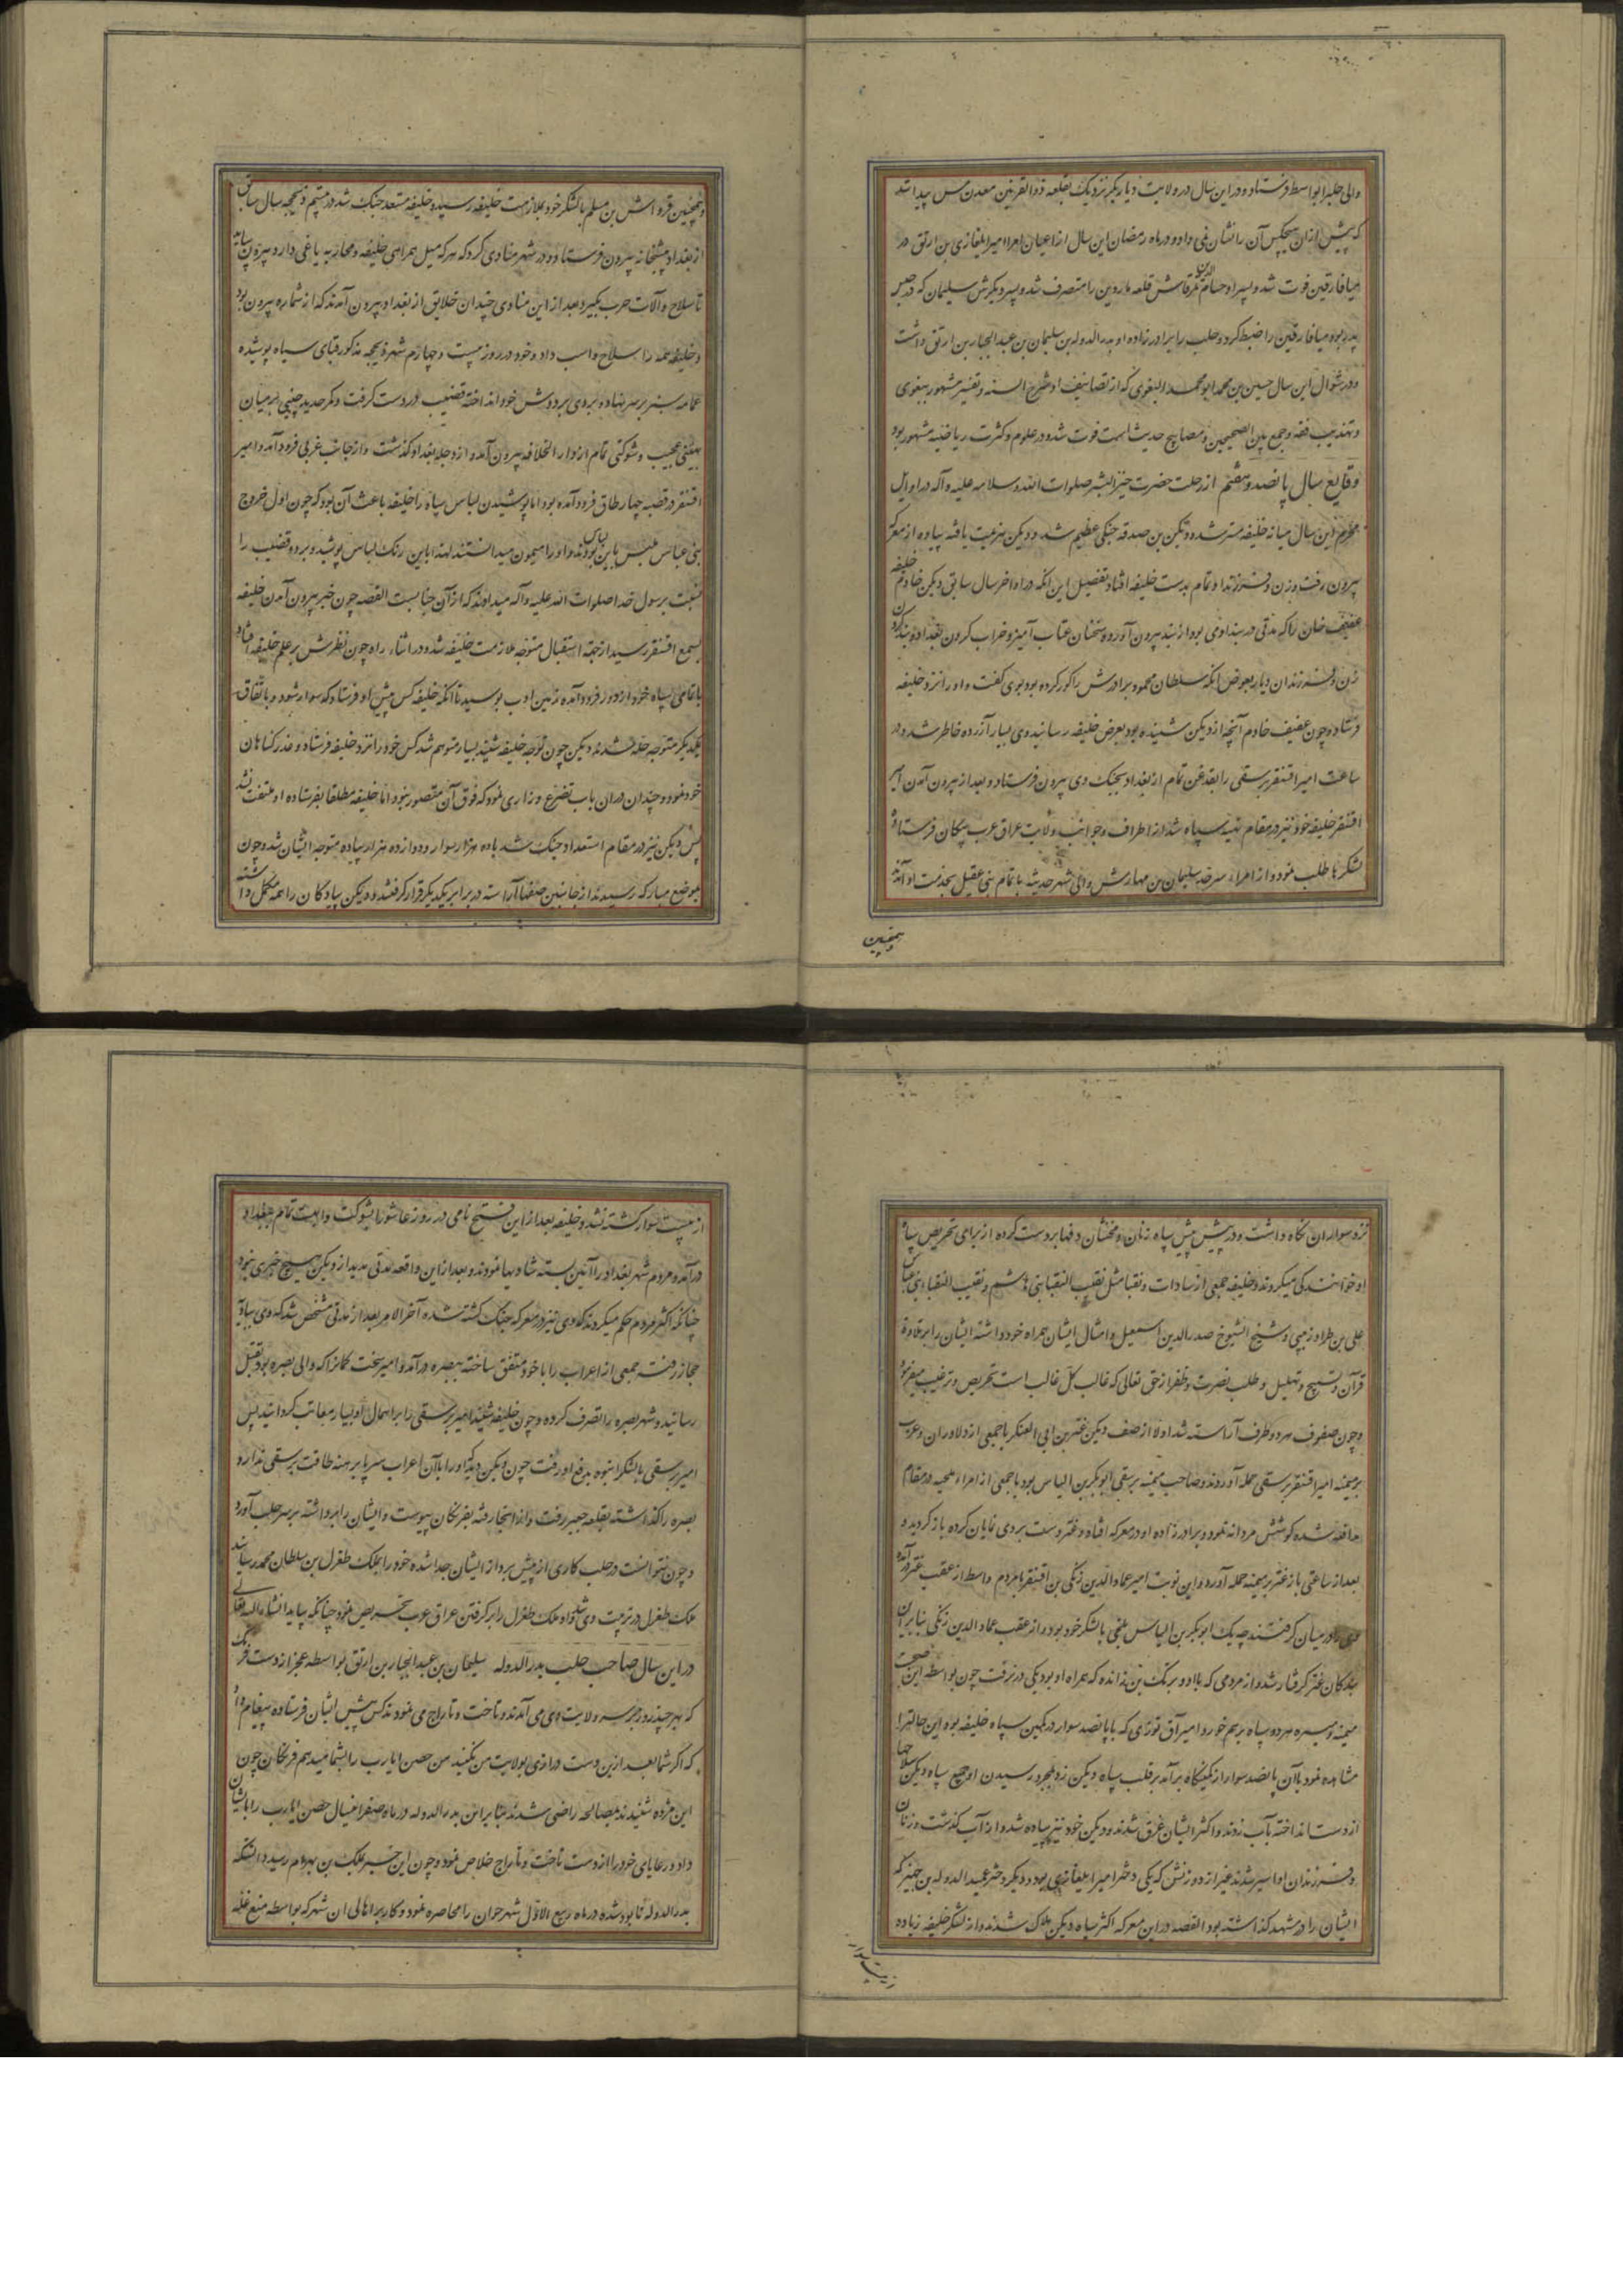 والی حله را بواسط فرستاد و در این سال در ولایت دیاربکر نزدیک بقلعه ذوالقرنین معدن مس پیدا شد
که پیش ازان هیچکس آن را نشان نمی داد و در ماه رمضان این سال از اعیان امرا امیر ایلغازی بن ارتق در
میافارقین فوت شد و پسر او حسام الدین تمرتاش قلعه ماردین را متصرف شد و پسر دیکرش سلیمان که در حین
پدر بود میافارقین را ضبط کرد و حلب را برادرزاده او بدرالدوله بن سلیمان بن عبدالجبار بن ارتق داشت
و در شوال این سال حسین بن محمد ابو محمد البغوی که از تصانیف او شرح السنه و تفسیر مشهور ببغوی
و تهذیب فقه و جمع بین الصحیحین و مصابیح حدیث است فوت شد و در علوم و کثرت ریاضت مشهور بود
وقایع سال پانصد و هفتم از رحلت حضرت خیر البشر صلوات الله و سلامه علیه و آله در اوایل
محرم این سال میانه خلیفه مسترشد و دیکن بن صدقه جنکی عظیم شد و دیکن هزیمت یافته پیاده از معرکه
بیرون رفت و زن و فرزند او تمام بدست خلیفه افتاد تفصیل این انکه در اواخر سال سابق دیکن خادم خلیفه
عفیف خان را که مدتی در بند او می بود از بند بیرون آورده سخنان عتاب آمیز و خراب کردن بغداد و بند کردن
زن و فرزندان و یار بعوض انکه سلطان محمود برادرش را کور کرده بود بوی کفت و او را نزد خلیفه
فرستاد و چون عفیف خادم آنچه از دیکن شنیده بود بعرض خلیفه رسانید وی بسیار آزرده خاطر شد و در
ساعت امیر اقسنقر برسقی را بقدغن تمام از بغداد بجنک وی بیرون فرستاد و بعد از بیرون آمدن امیر
اقسنقر خلیفه خود نیز در مقام تهیه سپاه شد از اطراف و جوانب ولایت عراق عرب پیکان فرستاده
لشکرها طلب نمود و از امراء سرحد سلیمان بن مهارش والی شهر حدیثه با تمام بنی عقیل بخدمت او آمد
وهمچنین
وهمچنین قرواش بن مسلم با لشکر خود بملازمت خلیفه رسید و خلیفه مستعد جنک شد در بیستم ذیحجه سال سابق
از بغداد پیشخانه بیرون فرستاد و در شهر منادی کرد که هر که میل همراهی خلیفه و محاربه یاغی دارد بیرون بیاید
تا سلاح و آلات حرب بکیرد بعد از این منادی چندان خلایق از بغداد بیرون آمدند که از شماره بیرون بود
و خلیفه همه را سلاح و اسب داد و خود در روز بیست و چهارم شهر ذیحجه مذکور قبای سیاه پوشیده
عمامه سبز بر سر نهاده و بردی بر دوش خود انداخته قضیب در دست کرفت و کمر حدید چینی بر میان
بهیئتی عجیب و شوکتی تمام از دار الخلافه بیرون آمد و از دجله بغداد کذشت و از جانب غربی فرود آمد و امیر
اقسنقر در قصبه چهار طاق فرود آمده بود اما پوشیدن لباس سیاه را خلیفه باعث آن بود که چون اول خروج
بنی عباس ملبس باین لباس بودند و او را میمون میدانستند لهذا باین رنک لباس پوشید و برد و قضیب را
نسبت برسول خدا صلوات الله علیه و آله میدادند که از آن جنابست القصه چون خبر بیرون آمدن خلیفه
بسمع اقسنقر رسید از جهة استقبال متوجه ملازمت خلیفه شد و در اثناء راه چون نظرش بر علم خلیفه افتاد
با تمامی سپاه خود از دور فرود آمده زمین ادب بوسید تا انکه خلیفه کس پیش او فرستاد که سوار شود و باتفاق
یکدیکر متوجه حله شدند دیکن چون توجه خلیفه شنید بسیار متوهم شد کس خود را نزد خلیفه فرستاد و عذر کناهان
خود نمود و چندان دران باب تضرع و زاری نمود که فوق آن متصور نبود اما خلیفه مطلقا بفرستاده او ملتفت نشد
پس دیکن نیز در مقام استعداد جنک شد با ده هزار سوار و دوازده هزار پیاده متوجه ایشان شد و چون
بموضع مبارکه رسیدند از جانبین صفها آراسته در برابر یکدیکر قرار کرفتند و دیکن پیادکان را همه مکمل داشته
نزد سواران نکاه داشت و در پیش پیش سپاه زنان و مخنثان دفها بر دست کرده از برای تحریص سپاه
او خوانندکی میکردند و خلیفه جمعی از سادات و نقبا مثل نقیب النقبا بنی هاشم و نقیب النقبا بنی عباس
علی بن طراد زینبی و شیخ الشیوخ صدرالدین اسمعیل و امثال ایشان همراه خود داشته ایشان را بر تلاوة
قرآن و تسبیح و تهلیل و طلب نصرت و ظفر از حق تعالی که غالب کل غالب است تحریص و ترغیب میفرمود
و چون صفوف هر دو طرف آراسته شد اولا از صف دیکن عنتر بن ابی العسکر با جمعی از دلاوران و عرب
بر میمنه امیر اقسنقر برسقی حمله آوردند و صاحب میمنه برسقی ابوبکر بن الیاس بود با جمعی از امراء بلخیه در مقام
مدافعه شده کوشش مردانه نمود و برادرزاده او در معرکه افتاد و عنتر دست بردی نمایان کرده باز کردید و
بعد از ساعتی باز عنتر بر میمنه حمله آورد و این نوبت امیر عمادالدین زنکی بن اقسنقر با مردم واسط از عقب عنتر در آمده
وی را در میان کرفتند چه یک ابوبکر بن الیاس بلخی با لشکر خود بود و از عقب عمادالدین زنکی بنابر آن
عنتر کرفتار شد و از مردمی که با او بود بریک بن زانده که همراه او بود یکی در نرفت چون بواسطه این صحبت
میمنه و میسره هر دو سپاه برهم خورد امیر آق بوری که با پانصد سوار در کمین سپاه خلیفه بود این حالتها
مشاهده نمود با آن پانصد سوار از کمینکاه برآمد بر قلب سپاه دیکن زد بمجرد رسیدن او جمیع سپاه دیکن سلاحها
از دست انداخته بآب زدند و اکثر ایشان غرق شدند و دیکن خود نیز پیاده شد و از آب کذشت و زنان
و فرزندان او اسیر شدند غیر از دو زنش که یکی دختر امیر ایلغازی بود و دیکر دختر عمید الدوله بن جهیر که
ایشان را در مشهد کذاشته بود القصه در این معرکه اکثر سپاه دیکن هلاک شدند و از لشکر خلیفه زیاده
از بیست سوار
از بیست سوار کشته نشد و خلیفه بعد از این فتح نامی در روز عاشورا بشوکت و ابهت تمام ببغداد
درآمد و مردم شهر بغداد را آئین بسته شادیها نمودند و بعد از این واقعه مدتی مدید از دیکن هیچ خبری نبود
چنانکه اکثر مردم حکم میکردند که وی نیز در معرکه جنک کشته شده آخر الامر بعد از مدتی مشخص شد که وی ببادیه
حجاز رفت و جمعی از اعراب را با خود متفق ساخته ببصره درآمد و امیر سخت کمان را که والی بصره بود بقتل
رسانید و شهر بصره را تصرف کرده و چون خلیفه شنید امیر برسقی را بر اهمال او بسیار معاتب کردانید پس
امیر برسقی با لشکر انبوه بدفع او رفت چون دیکن دید که او را با آن اعراب سر پا برهنه طاقت برسقی ندارد
بصره را کذاشته بقلعه جعبر رفت و از انجا رفته بفرنکان پیوست و ایشان را برداشته بر سر حلب آورد
و چون نتوانست در حلب کاری از پیش برد از ایشان جدا شده خود را بملک طغرل بن سلطان محمد رسانید
ملک طغرل در تربیت وی شد و او ملک طغرل را بر کرفتن عراق عرب تحریص نمود چنانکه بیاید انشاء الله تعالی
در این سال صاحب حلب بدرالدوله سلیمان بن عبدالجبار بن ارتق بواسطه عجز از دست فرنک
که بهر چند روز بر سر ولایت وی می آمدند و تاخت و تاراج می نمودند کس پیش ایشان فرستاده پیغام داد
که اکر شما بعد ازین دست درازی بولایت من نکنید من حصن اثارب را بشما میدهم فرنکان چون
این مژده شنیدند بمصالحه راضی شدند بنابراین بدرالدوله در ماه صفر این سال حصن اثارب را بایشان
داد و رعایای خود را از دست تاخت و تاراج خلاص نمود و چون این خبر بملک بن بهرام رسید دانست که
بدرالدوله نابود شده در ماه ربیع الاول شهر حران را محاصره نمود و کار بر اهالی ان شهر که بواسطه منع غله